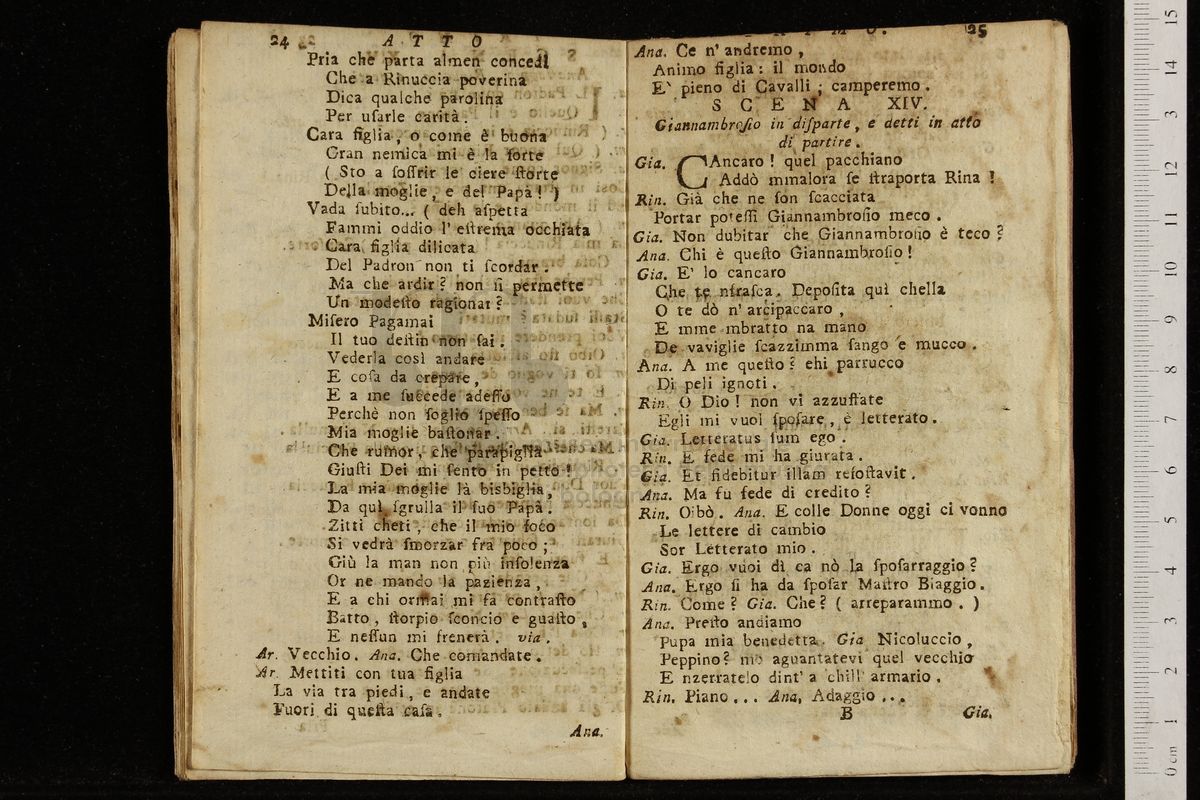 24 A T T O
Pria che parta almen concedi
Che a Rinuccia poverina
Dica qualche parolina
Per uſarle carità.
Cara figlia, o come è buona
Gran nemica mi è la ſorte
( Sto a ſoffrir le ciere ſtorte
Della moglie, e del Papà! )
Vada ſubito... ( deh aſpetta
Fammi oddio l' eſtrema occhiata
Cara figlia dilicata
Del Padron non ti ſcordar.
Ma che ardir? non ſi permette
Un modeſto ragionar?
Miſero Pagamai
Il tuo deſtin non ſai.
Vederla così andare
E coſa da crepare,
E a me ſuccede adeſſo
Perchè non ſoglio ſpeſſo
Mia moglie baſtonar.
Che rumor, che parapiglia
Giuſti Dei mi ſento in petto!
La mia moglie là bisbiglia,
Da quì ſgrulla il ſuo Papà.
Zitti cheti, che il mio foco
Si vedrà ſmorzar fra poco;
Giù la man non più inſolenza
Or ne mando la pazienza,
E a chi ormai mi fa contraſto
Batto, ſtorpio ſconcio e guaſto,
E neſſun mi frenerà. via.
Ar. Vecchio. Ana. Che comandate.
Ar. Mettiti con tua figlia
La via tra piedi, e andate
Fuori di queſta caſa.
Ana.
25
Ana. Ce n' andremo,
Animo figlia: il mondo
E` pieno di Cavalli; camperemo.
S C E N A XIV.
Giannambroſio in diſparte, e detti in atto
di partire.
Gia. CAncaro! quel pacchiano
Addò mmalora ſe ſtraporta Rina!
Rin. Già che ne ſon ſcacciata
Portar poteſſi Giannambroſio meco.
Gia. Non dubitar che Giannambroſio è teco?
Ana. Chi è queſto Giannambroſio!
Gia. E' lo cancaro
Che te nfraſca. Depoſita quì chella
O te dò n' arcipaccaro,
E mme mbratto na mano
De vaviglie ſcazzimma ſango e mucco.
Ana. A me queſto? ehi parrucco
Di peli ignoti.
Rin. O Dio! non vi azzuffate
Egli mi vuoi ſpoſare, è letterato.
Gia. Letteratus ſum ego.
Rin. E fede mi ha giurata.
Gia. Et fidebitur illam refoſtavit.
Ana. Ma fu fede di credito?
Rin. Oibò. Ana. E colle Donne oggi ci vonno
Le lettere di cambio
Sor Letterato mio.
Gia. Ergo vuoi dì ca nò la ſpoſarraggio?
Ana. Ergo ſi ha da ſpoſar Maſtro Biaggio.
Rin. Come? Gia. Che? ( arreparammo. )
Ana. Preſto andiamo
Pupa mia benedetta. Gia Nicoluccio,
Peppino? mo aguantatevi quel vecchio
E nzerratelo dint' a chill' armario.
Rin. Piano... Ana. Adaggio...
B Gia.